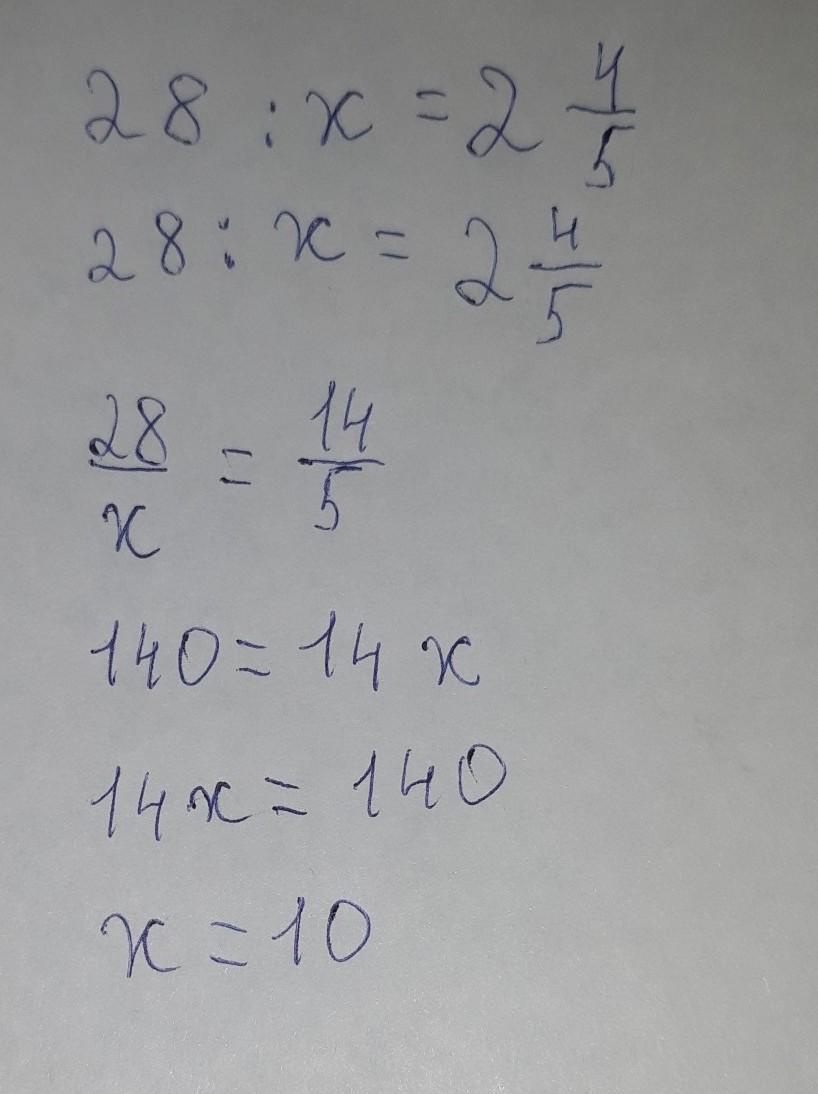 28 : x = 2 4/5
28 : x = 2 4/5
28/x = 14/5
140 = 14 x
14x = 140
x = 10